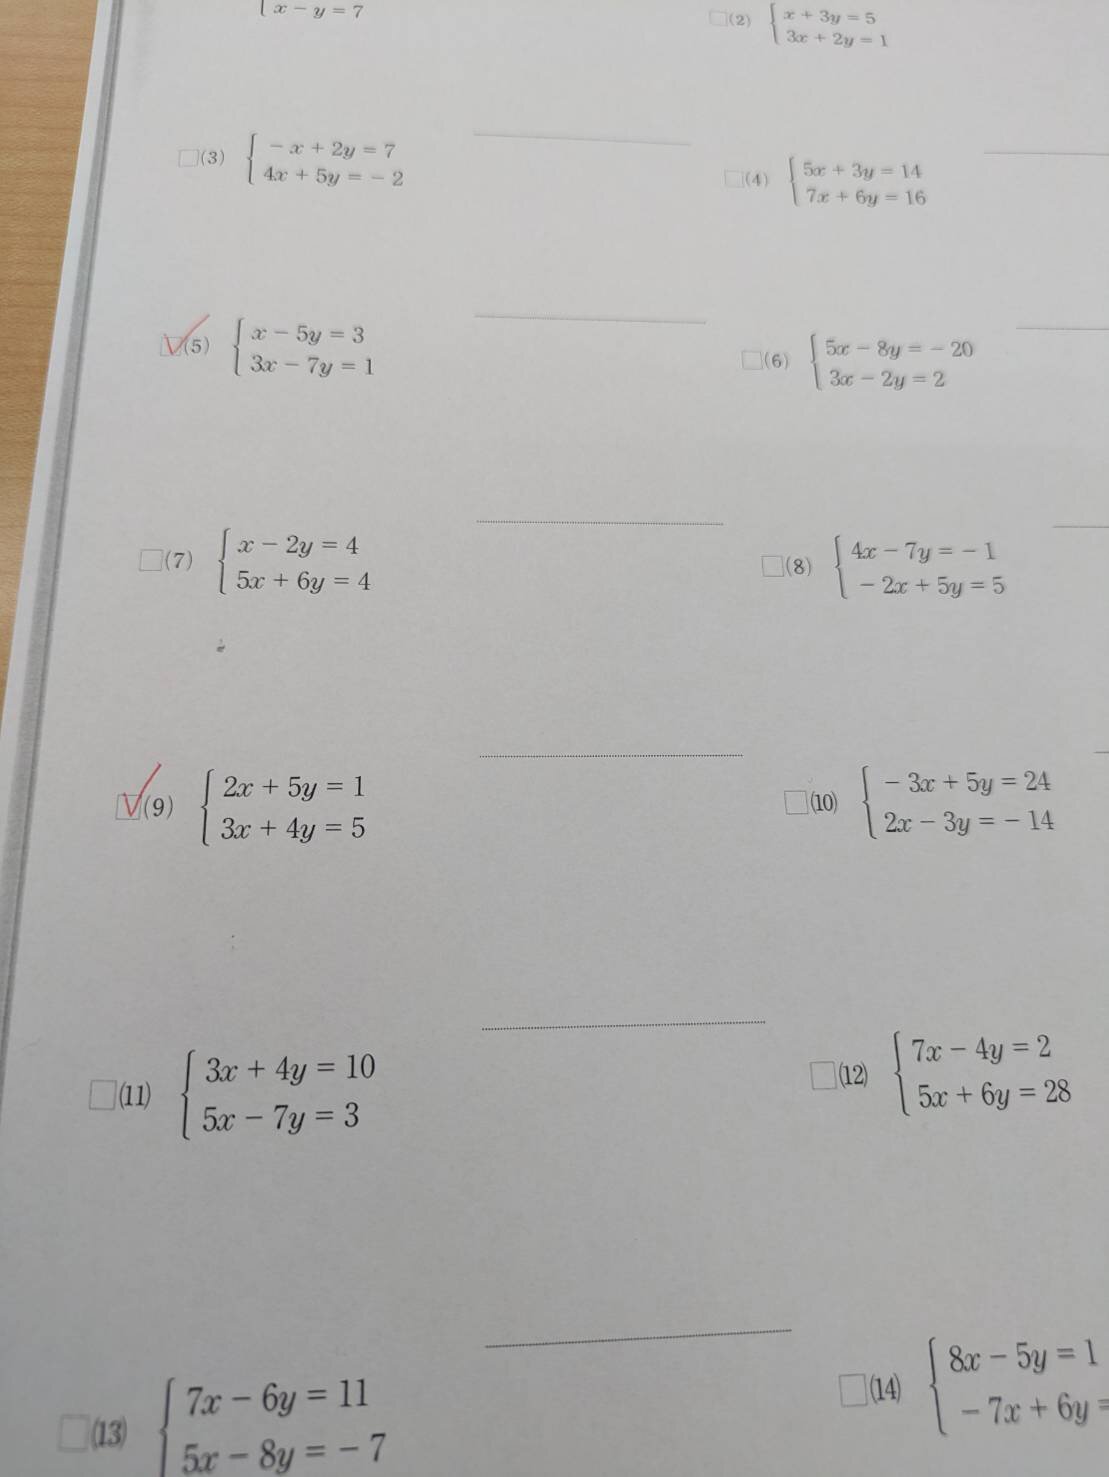 x - y = 7
(2) x + 3y = 5
3x + 2y = 1
(3) -x + 2y = 7
4x + 5y = -2
(4) 5x + 3y = 14
7x + 6y = 16
(5) x - 5y = 3
3x - 7y = 1
(6) 5x - 8y = -20
3x - 2y = 2
(7) x - 2y = 4
5x + 6y = 4
(8) 4x - 7y = -1
-2x + 5y = 5
(9) 2x + 5y = 1
3x + 4y = 5
(10) -3x + 5y = 24
2x - 3y = -14
(11) 3x + 4y = 10
5x - 7y = 3
(12) 7x - 4y = 2
5x + 6y = 28
(13) 7x - 6y = 11
5x - 8y = -7
(14) 8x - 5y = 1
-7x + 6y =